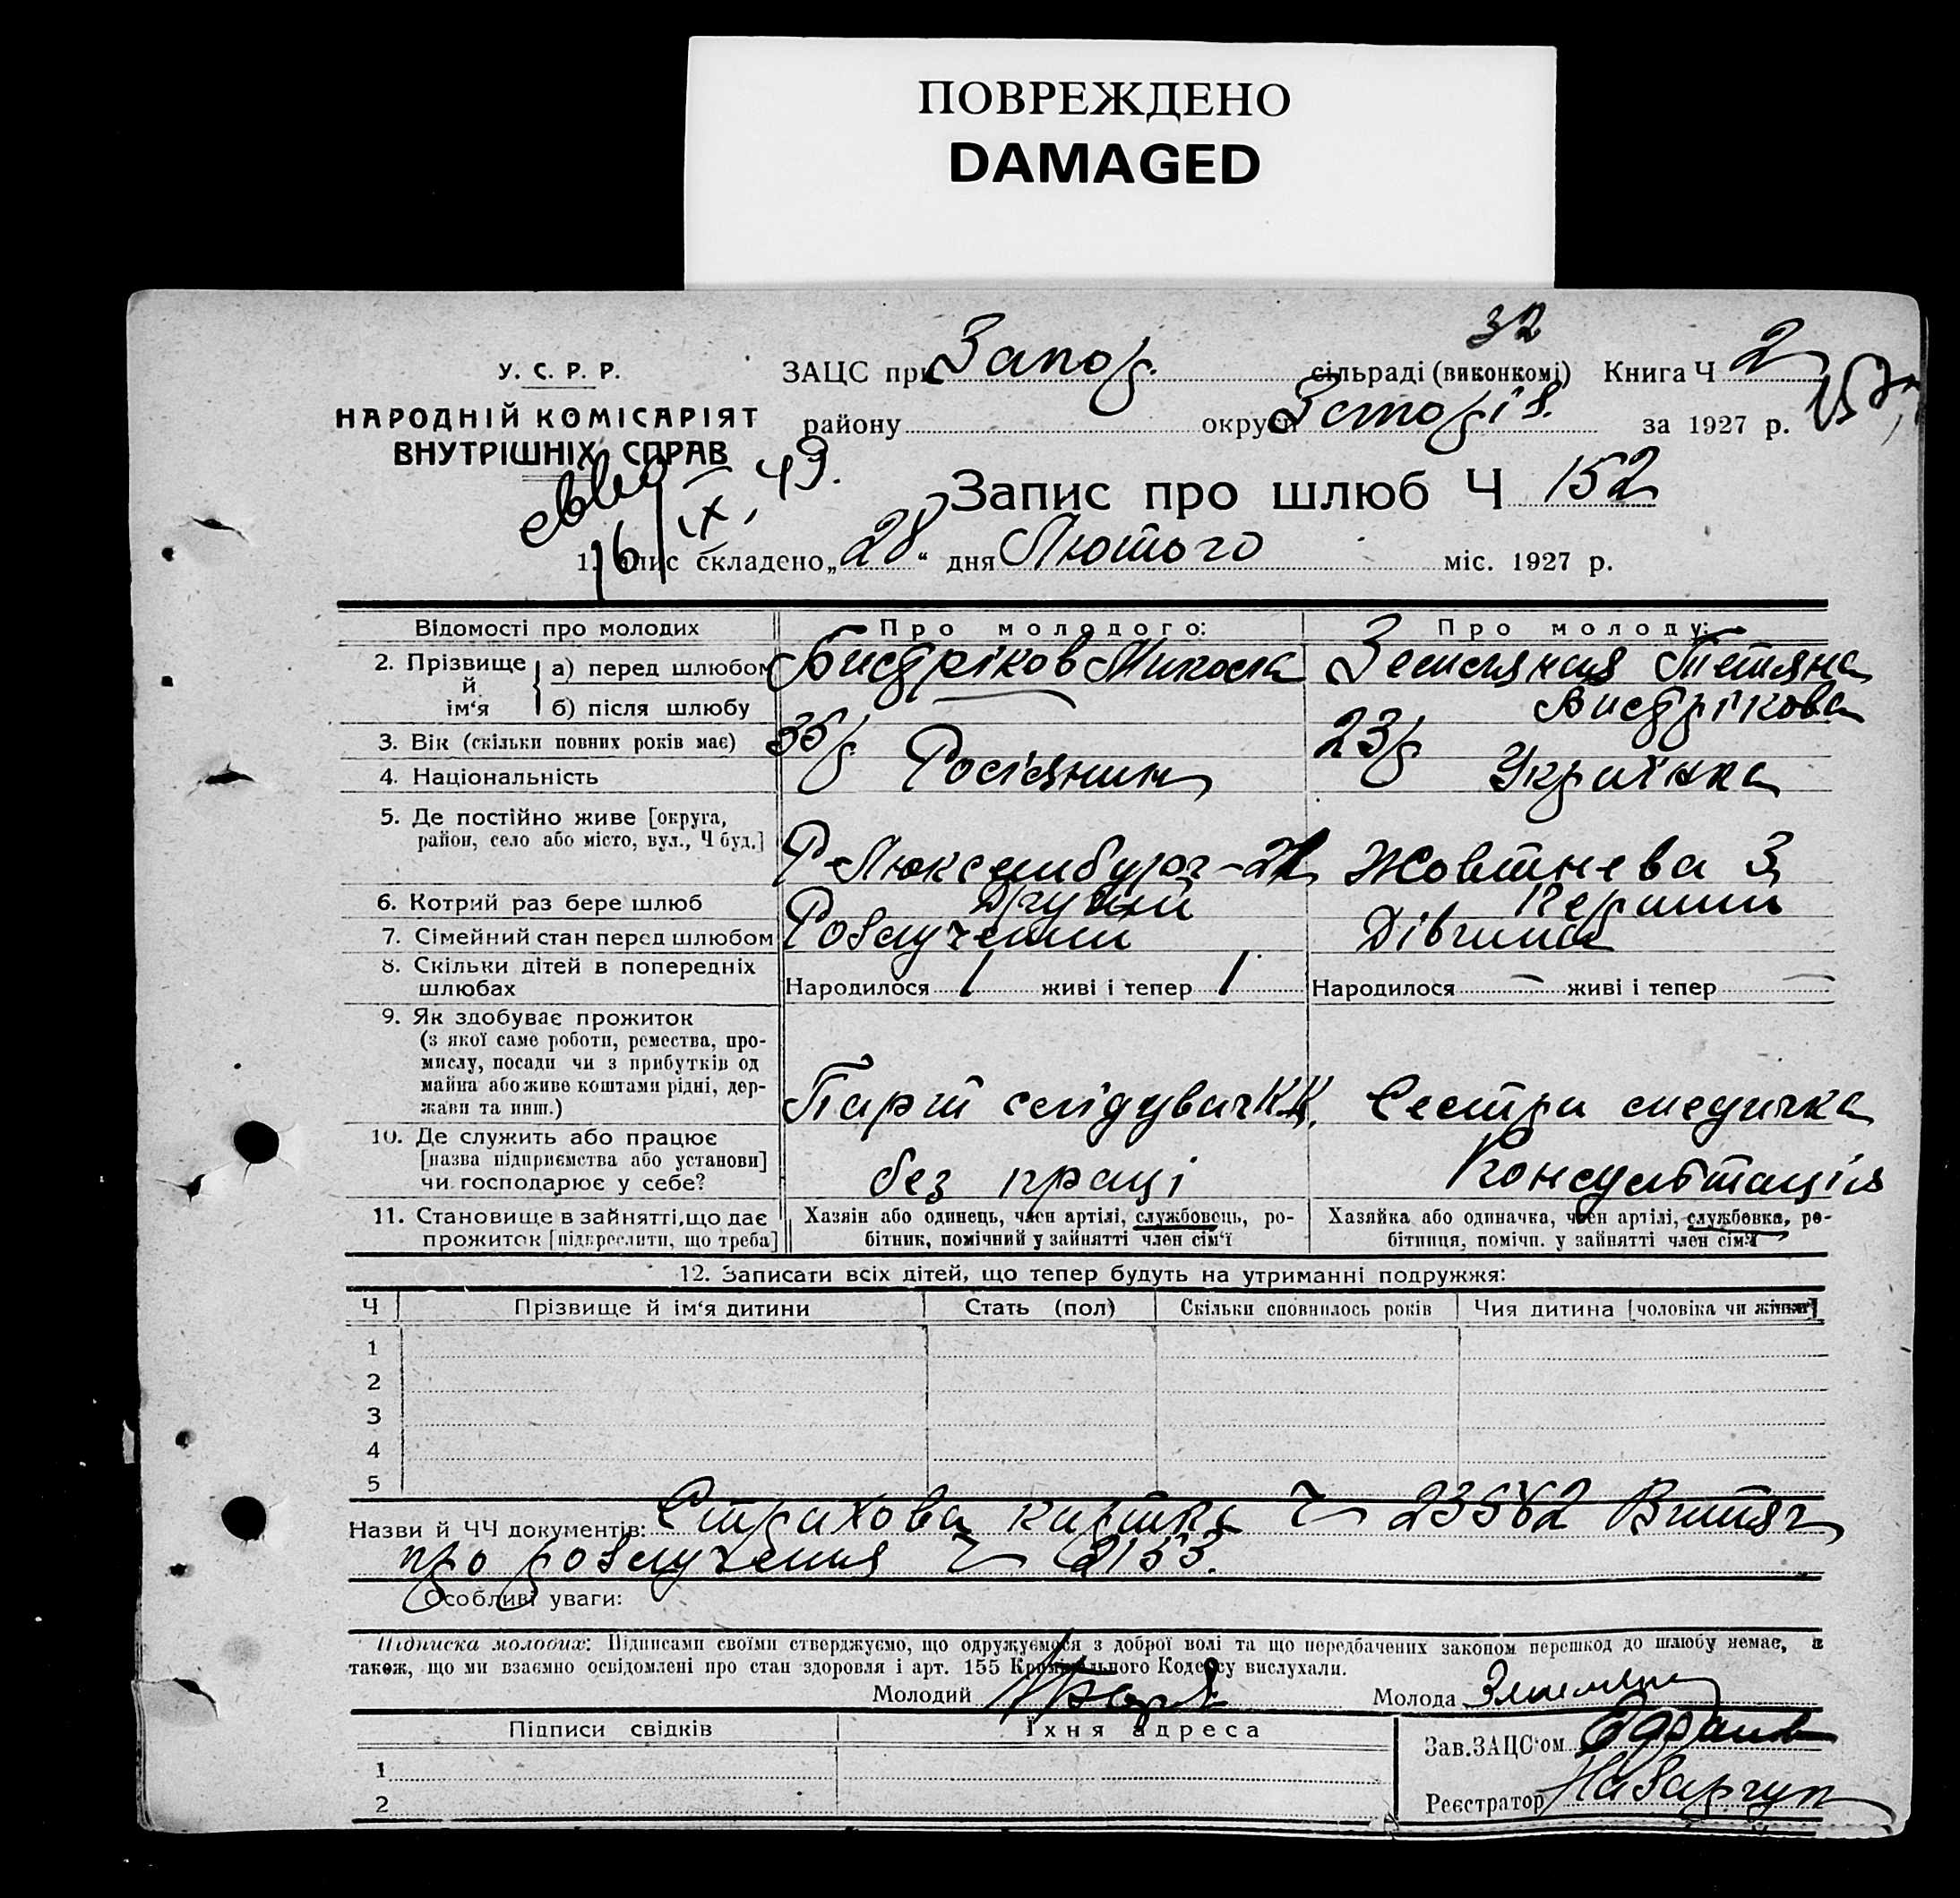 ПОВРЕЖДЕНО
DAMAGED
32
У. С. Р. Р.
ЗАЦС при Запор. сільраді (виконкомі) Книга Ч 2
НАРОДНІЙ КОМІСАРІЯТ
району округи за 1927 р.
ВНУТРІШНІХ СПРАВ
Запис про шлюб Ч 152
16/IX, 49.
1. Запис складено „28“ дня Лютого міс. 1927 р.
Відомості про молодих Про молодого: Про молоду:
2. Прізвище й ім‘я а) перед шлюбом Бистріков Микола Тетяна
б) після шлюбу Бистрікова
3. Вік (скільки повних років має) 35р 23р
4. Національність Росіянин Українка
5. Де постійно живе [округа,
район, село або місто, вул., Ч буд.] Р Люксембург-21 Жовтнева 3
6. Котрий раз бере шлюб Другий Перший
7. Сімейний стан перед шлюбом Розлучений Дівчина
8. Скільки дітей в попередніх
шлюбах Народилося 1 живі і тепер 1 Народилося — живі і тепер —
9. Як здобуває прожиток
(з якої саме роботи, ремества, про-
мислу, посади чи з прибутків од
майна або живе коштами рідні, дер-
жави та инш.) слідувач К.К. Сестра медичка
10. Де служить або працює
[назва підприємства або установи]
чи господарює у себе? без праці Консультація
11. Становище в зайнятті, що дає Хазяін або одинець, член артілі, службовець, ро- Хазяйка або одиначка, член артілі, службовка, ро-
прожиток [підкреслити, що треба] бітник, помічний у зайнятті член сім‘ї бітниця, помічн. у зайнятті член сім‘ї
12. Записати всіх дітей, що тепер будуть на утриманні подружжя:
Ч Прізвище й ім‘я дитини Стать (пол) Скільки сповнилось років Чия дитина [чоловіка чи жінки]
1
2
3
4
5
Назви й ЧЧ документів: Страхова картка Ч 23562 Витяг
про розлучення Ч 2153.
Особливі уваги:
Підписка молодих: Підписами своїми стверджуємо, що одружуємося з доброї волі та що передбачених законом перешкод до шлюбу немає, а
також, що ми взаємно освідомлені про стан здоровля і арт. 155 Кримінального Кодексу вислухали.
Молодий Молода
Підписи свідків Їхня адреса
Зав.ЗАЦС‘ом
1
Реєстратор
2